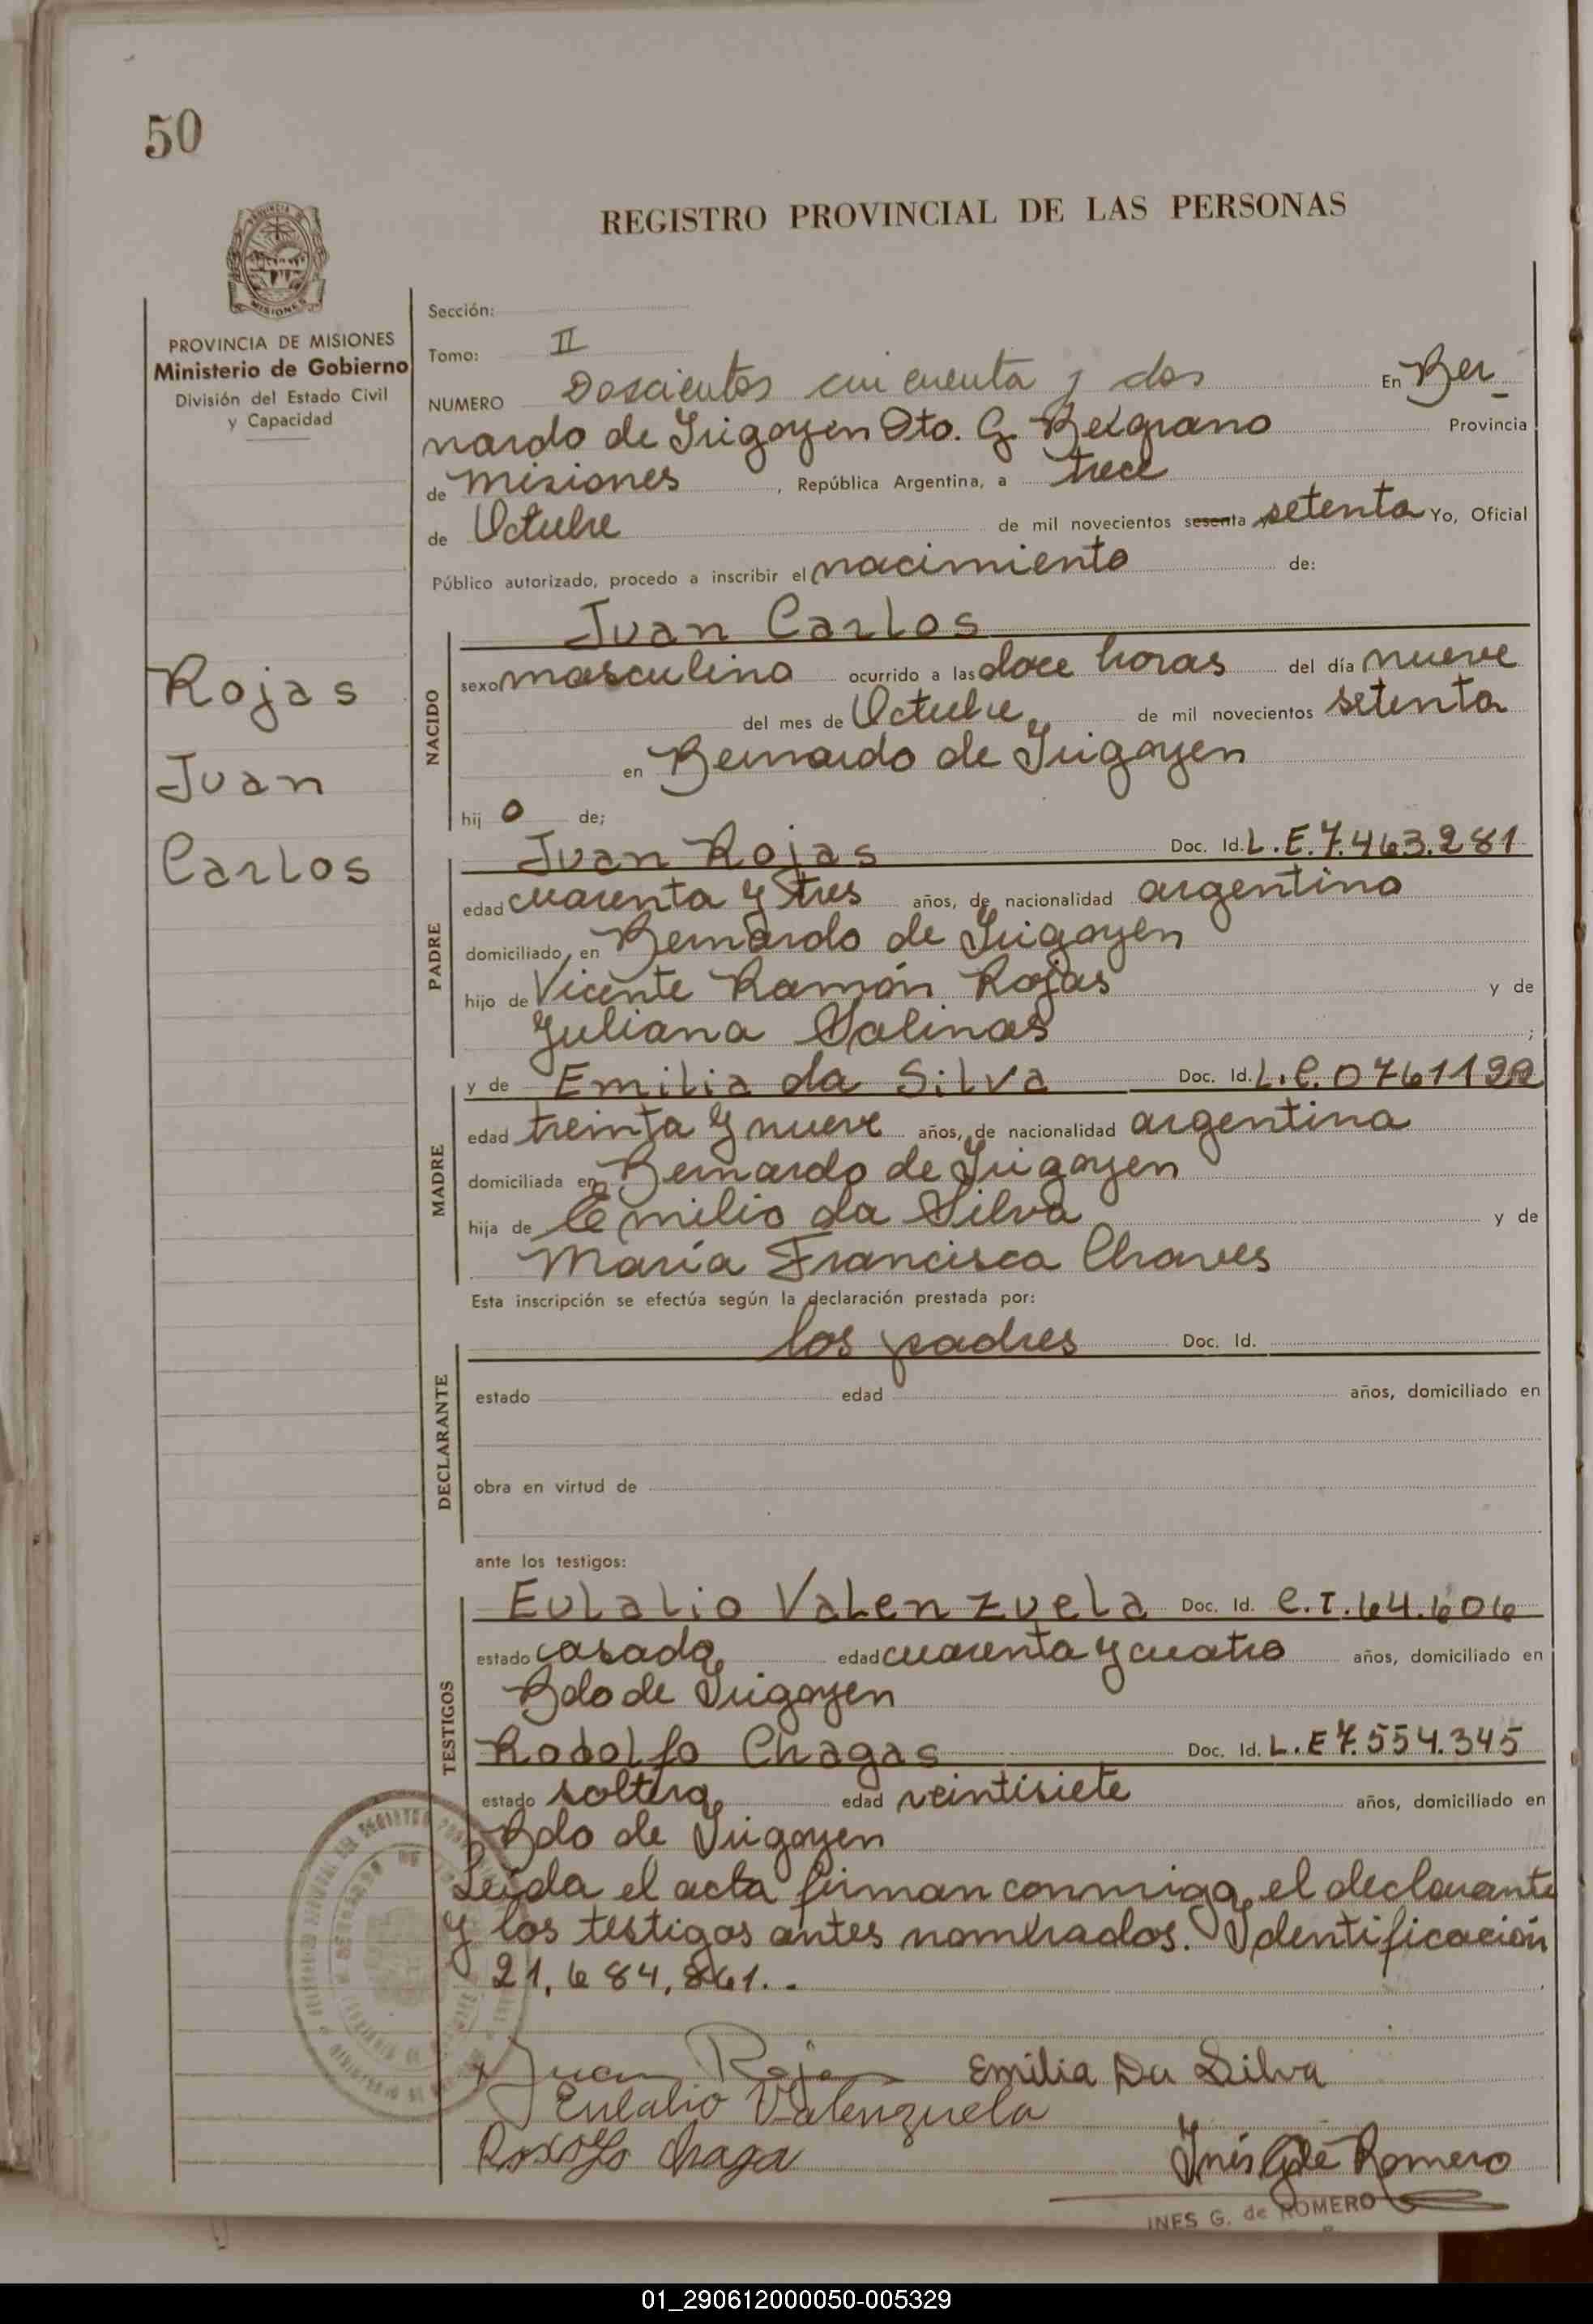 50
REGISTRO PROVINCIAL DE LAS PERSONAS
MISIONES
PROVINCIA DE MISIONES
Ministerio de Gobierno
División del Estado Civil
y Capacidad
Sección:
Tomo: II
NUMERO Doscientos cincuenta y dos En Ber-
nardo de Irigoyen Dto. G. Belgrano Provincia
de Misiones, República Argentina, a trece
de Octubre de mil novecientos sesenta y setenta Yo, Oficial
Público autorizado, procedo a inscribir el nacimiento de:
Rojas
Juan
Carlos
NACIDO
Juan Carlos
sexo masculino ocurrido a las doce horas del día nueve
del mes de Octubre, de mil novecientos setenta
en Bernardo de Irigoyen
hij o de;
PADRE
Juan Rojas Doc. Id. L.E.7.463.281
edad cuarenta y tres años, de nacionalidad argentino
domiciliado en Bernardo de Irigoyen
hijo de Vicente Ramón Rojas y de
Juliana Salinas ;
MADRE
y de Emilia da Silva Doc. Id. L.C.0761122
edad treinta y nueve años, de nacionalidad argentina
domiciliada en Bernardo de Irigoyen
hija de Emilio da Silva y de
María Francisca Chaves
Esta inscripción se efectúa según la declaración prestada por:
DECLARANTE
los padres Doc. Id.
estado edad años, domiciliado en
obra en virtud de
ante los testigos:
TESTIGOS
Eulalio Valenzuela Doc. Id. C.I.64.606
estado casado, edad cuarenta y cuatro años, domiciliado en
Bdo de Irigoyen
Rodolfo Chagas Doc. Id. L.E 7.554.345
estado soltero, edad veintisiete años, domiciliado en
Bdo de Irigoyen
Leída el acta firman conmigo, el declarante
y los testigos antes nombrados. Identificación
21.684.861.-
Juan Rojas Emilia Da Silva
Eulalio Valenzuela
Rodolfo Chaga Inés G de Romero
INES G. de ROMERO
01_290612000050-005329